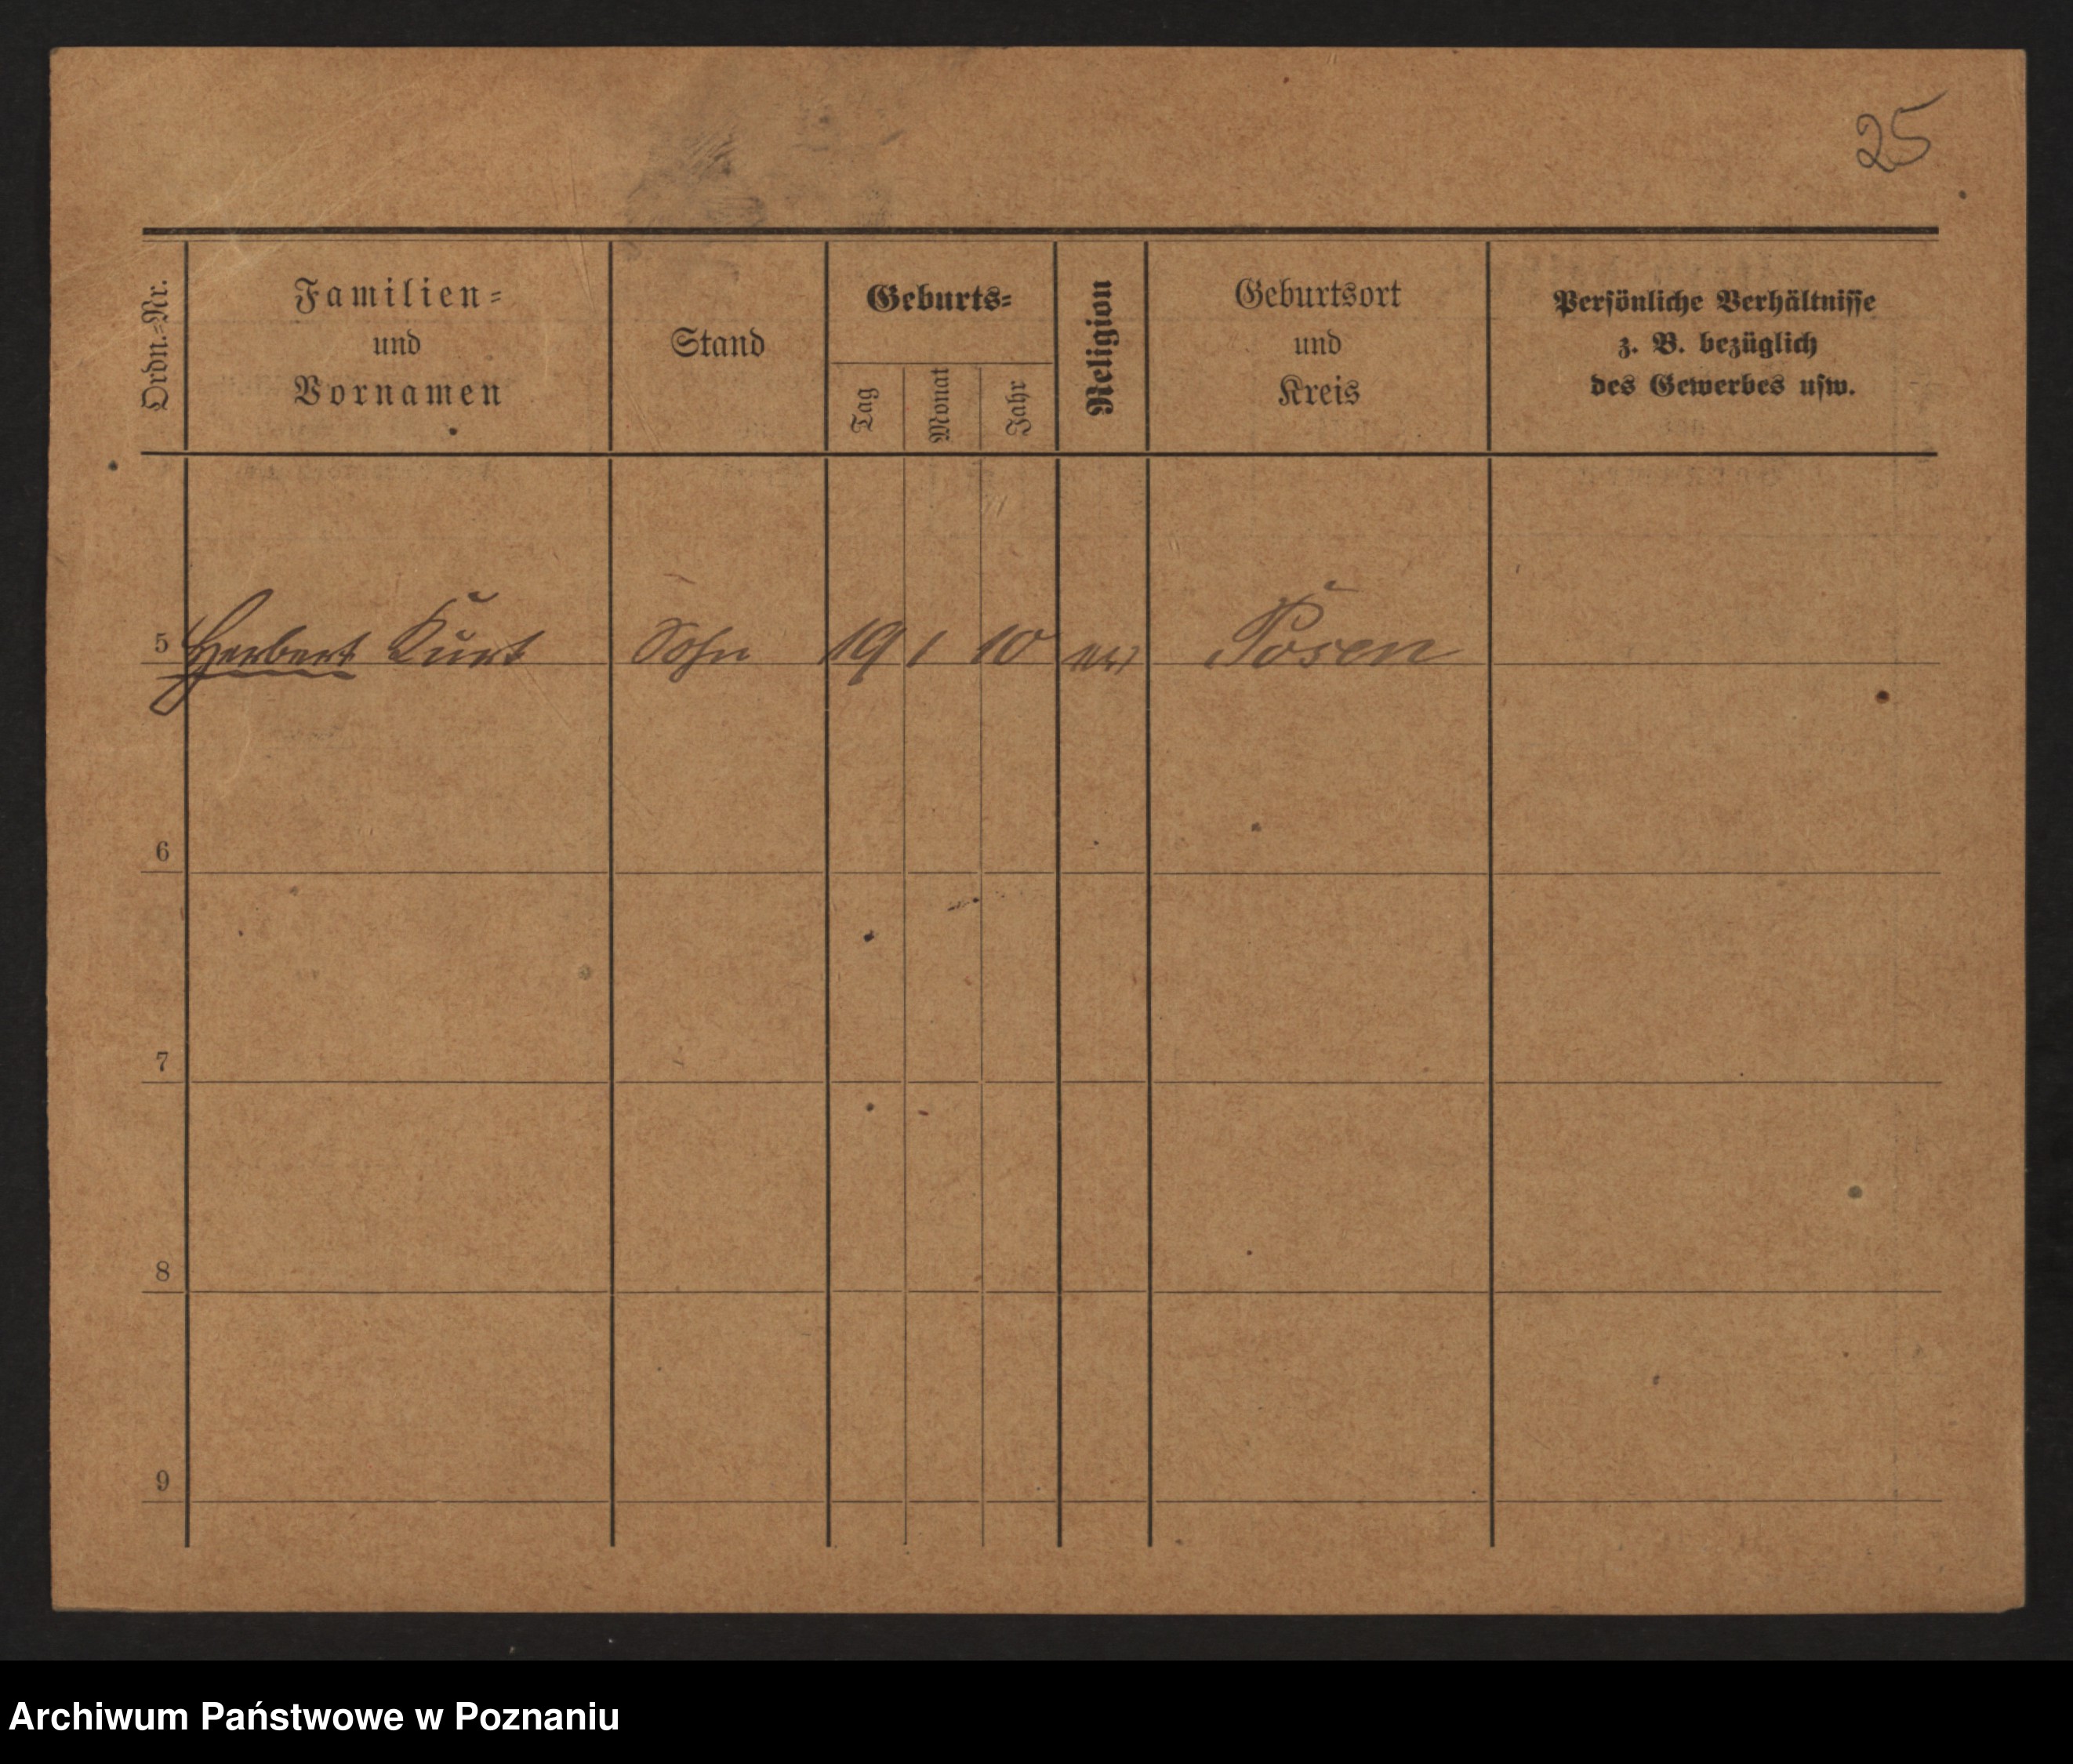 25
Ordn.-Nr.
Familien-
und
Vornamen
Stand
Geburts-
Tag
Monat
Jahr
Religion
Geburtsort
und
Kreis
Persönliche Verhältnisse
z. B. bezüglich
des Gewerbes usw.
5 Herbert Kurt Sohn 19 1 10 Posen
6
7
8
9
Archiwum Państwowe w Poznaniu